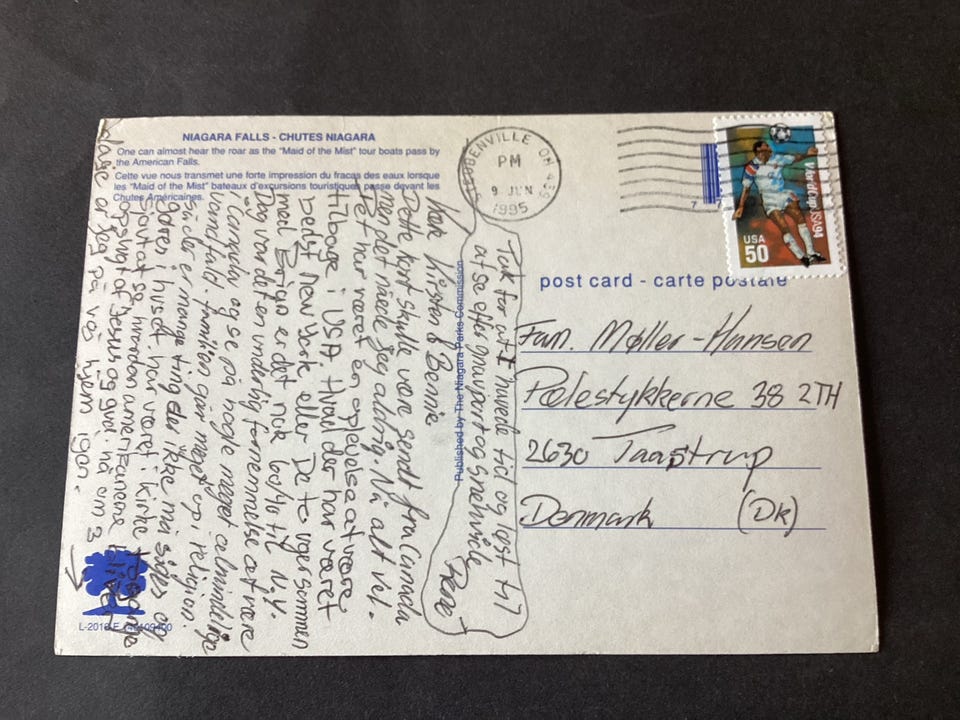 NIAGARA FALLS - CHUTES NIAGARA
One can almost hear the roar as the "Maid of the Mist" tour boats pass by
the American Falls.
Cette vue nous transmet une forte impression du fracas des eaux lorsque
les "Maid of the Mist" bateaux d'excursions touristiques passe devant les
Chutes Américaines.
STEUBENVILLE OH 439
PM
9 JUN
1995
World Cup USA 94
USA
50
post card - carte postale
Published by The Niagara Parks Commission
Fam. Møller-Hansen
Pælestykkerne 38 2TH
2630 Taastrup
Denmark (DK)
Kære Kirsten & Bennie
Dette kort skulle være sendt fra Canada
men det nåede jeg aldrig. Nå alt vel.
Det har været en oplevelse at være
tilbage i USA. Hvad der har været
bedst new York eller De to uger sammen
med Brigo er det nok 60/40 til N.Y.
Dog var det en underlig fornemmelse at være
i Canada og se på nogle meget almindelige
vandfald. familien går meget op i religion.
så der er mange ting du ikke må siges og
gøres i huset. har været i kirke gange
for at se hvordan amerikanerne bliver
opslugt af Jesus og gud. nå om 3
dage er jeg på vej hjem igen.
Tak for at I havede tid og lyst til
at se efter gnavpert og snehvide
Rene
L-2018-E